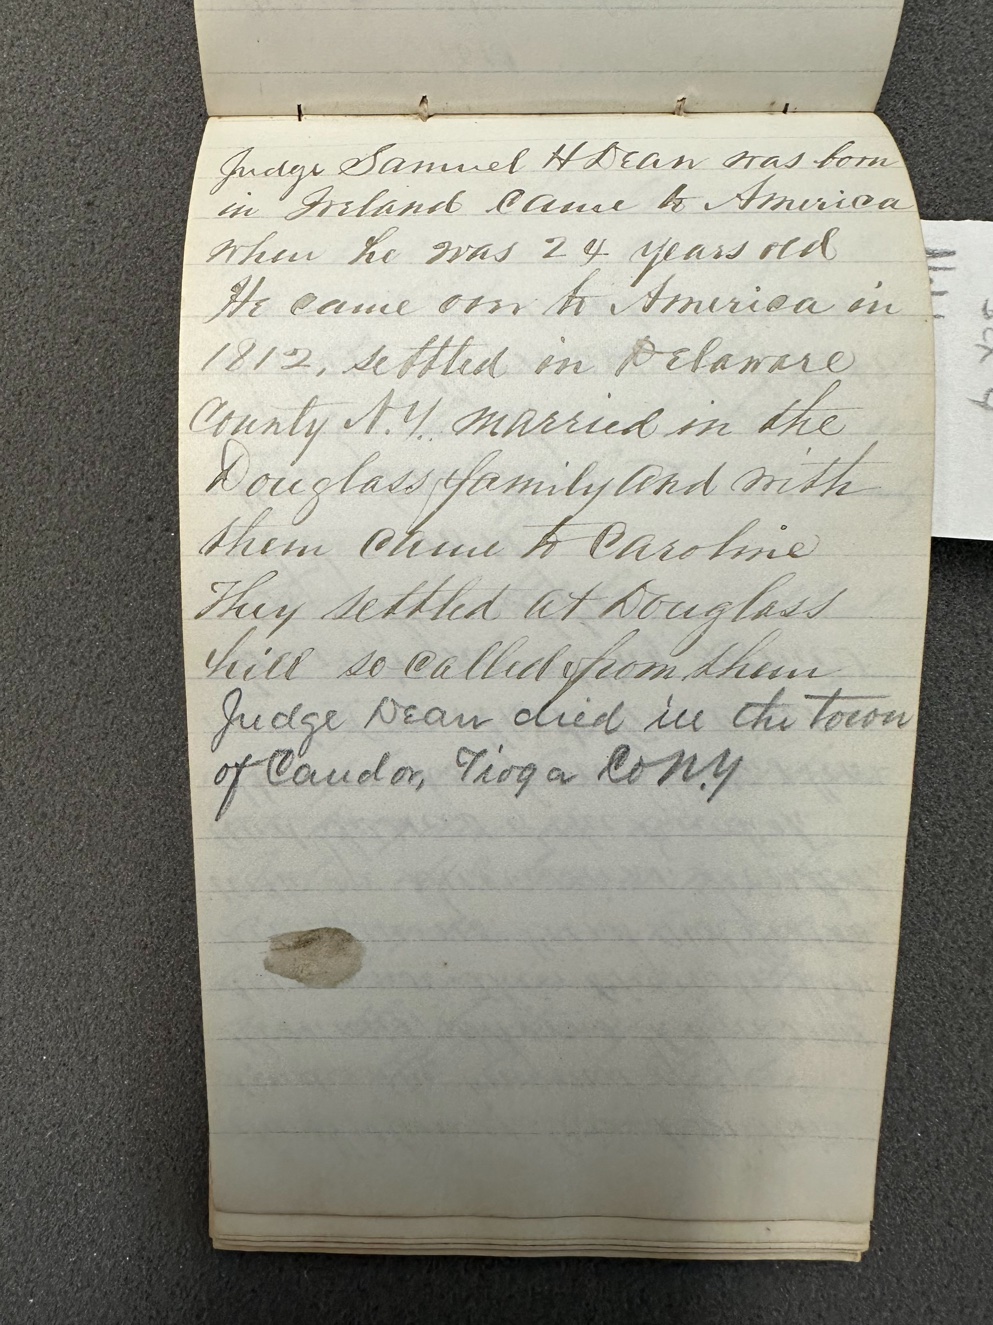 Judge Samuel H Dean was born
in Ireland came to America
when he was 24 years old
He came over to America in
1812, settled in Delaware
County N.Y. married in the
Douglass family and with
them came to Caroline
They settled at Douglass
hill so called from them
Judge Dean died in the town
of Candor, Tioga Co N.Y